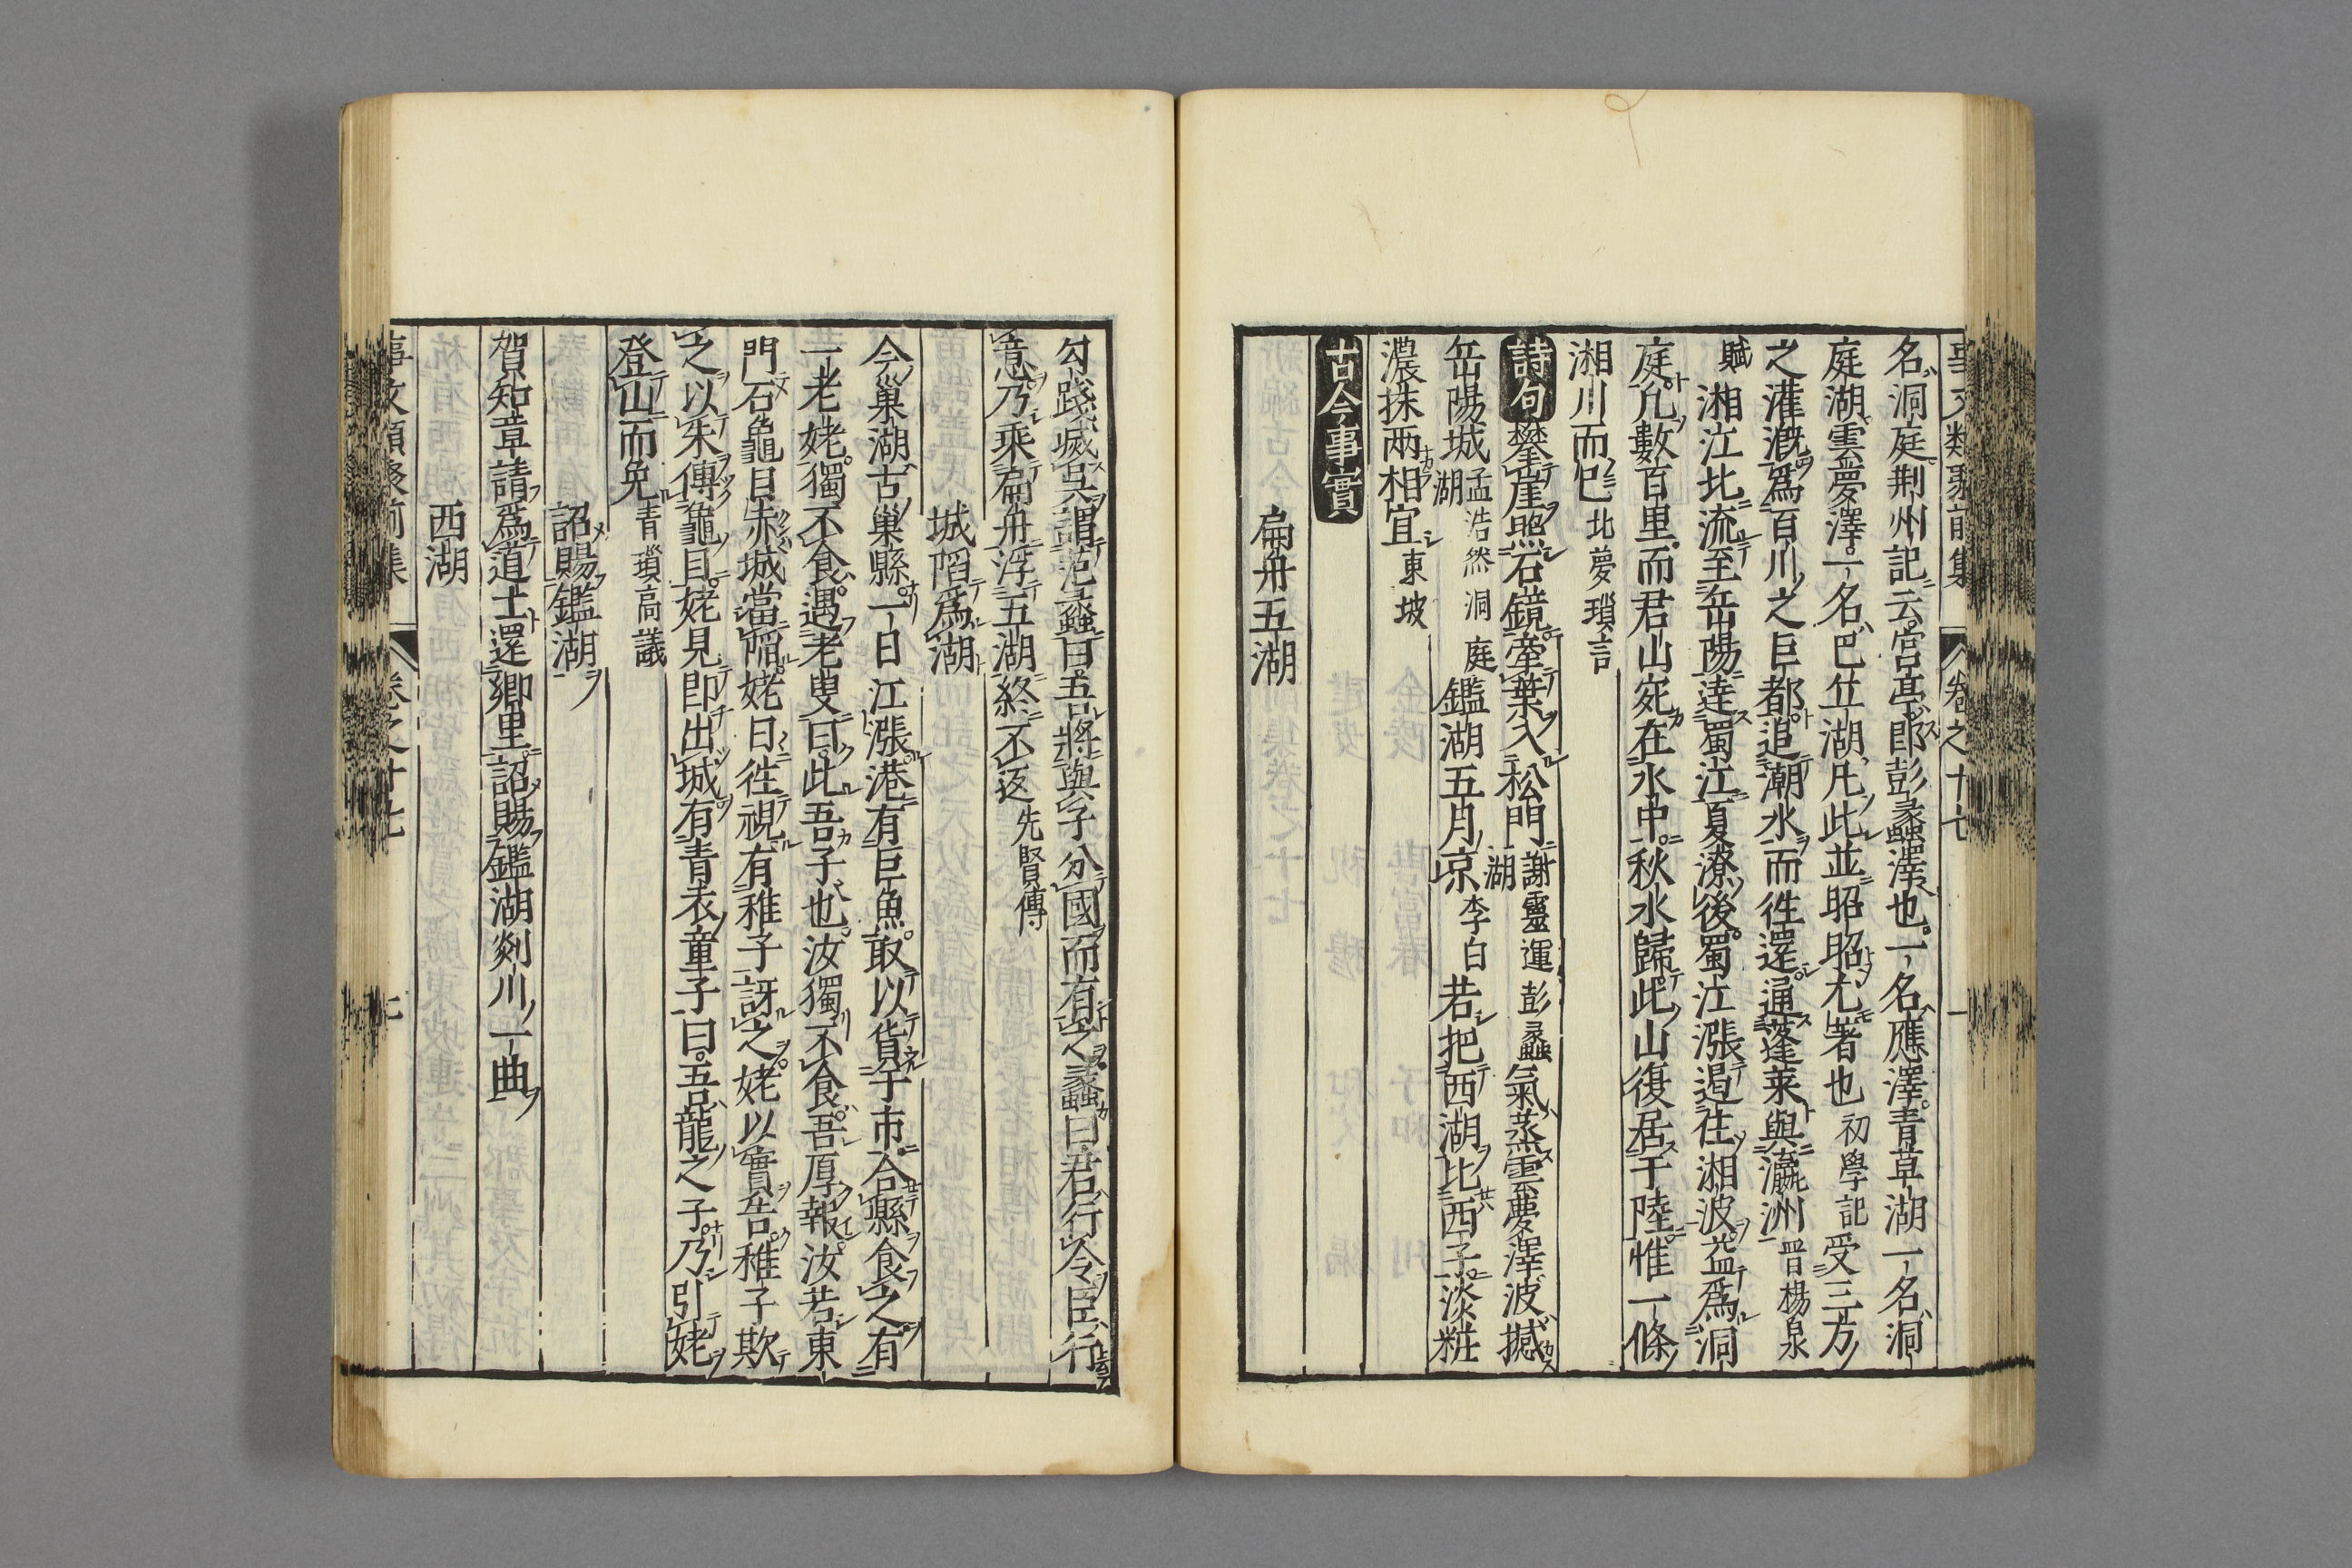 名洞庭荆州記云宮亭即彭蠡澤也一名應澤青草湖一名洞
庭湖雲夢澤一名巴丘湖凡此並昭昭尤著也初學記受三方
之灌漑爲百川之巨都追潮水而徃還通蓬莱與瀛洲晋楊泉
賦湘江北流至岳陽達蜀江夏潦後蜀江漲遏住湘波溢爲洞
庭凢數百里而君山宛在水中秋水歸此山復居于陸惟一條
湘川而巳北夢瑣言
詩句攀崖照石鏡牽葉入松門謝靈運彭蠡湖氣蒸雲夢澤波撼
岳陽城孟浩然洞庭湖鑑湖五月凉李白若把西湖比西子淡粧
濃抹兩相宜東坡
古今事實
扁舟五湖
勾踐滅吳謂范蠡曰吾將與子分國而有之蠡曰君行令臣行
意乃乘扁舟浮五湖終不返先賢傳
城陷爲湖
今巢湖古巢縣一日江漲港有巨魚取以貨于市合縣食之有
一老姥獨不食遇老叟曰此吾子也汝獨不食吾厚報汝若東
門石龜目赤城當陷姥日徃視有稚子訝之姥以實告稚子欺
之以朱傅龜目姥見即出城有青衣童子曰吾龍之子乃引姥
登山而免青瑣高議
詔賜鑑湖
賀知章請爲道士還鄉里詔賜鑑湖剡川一曲
西湖